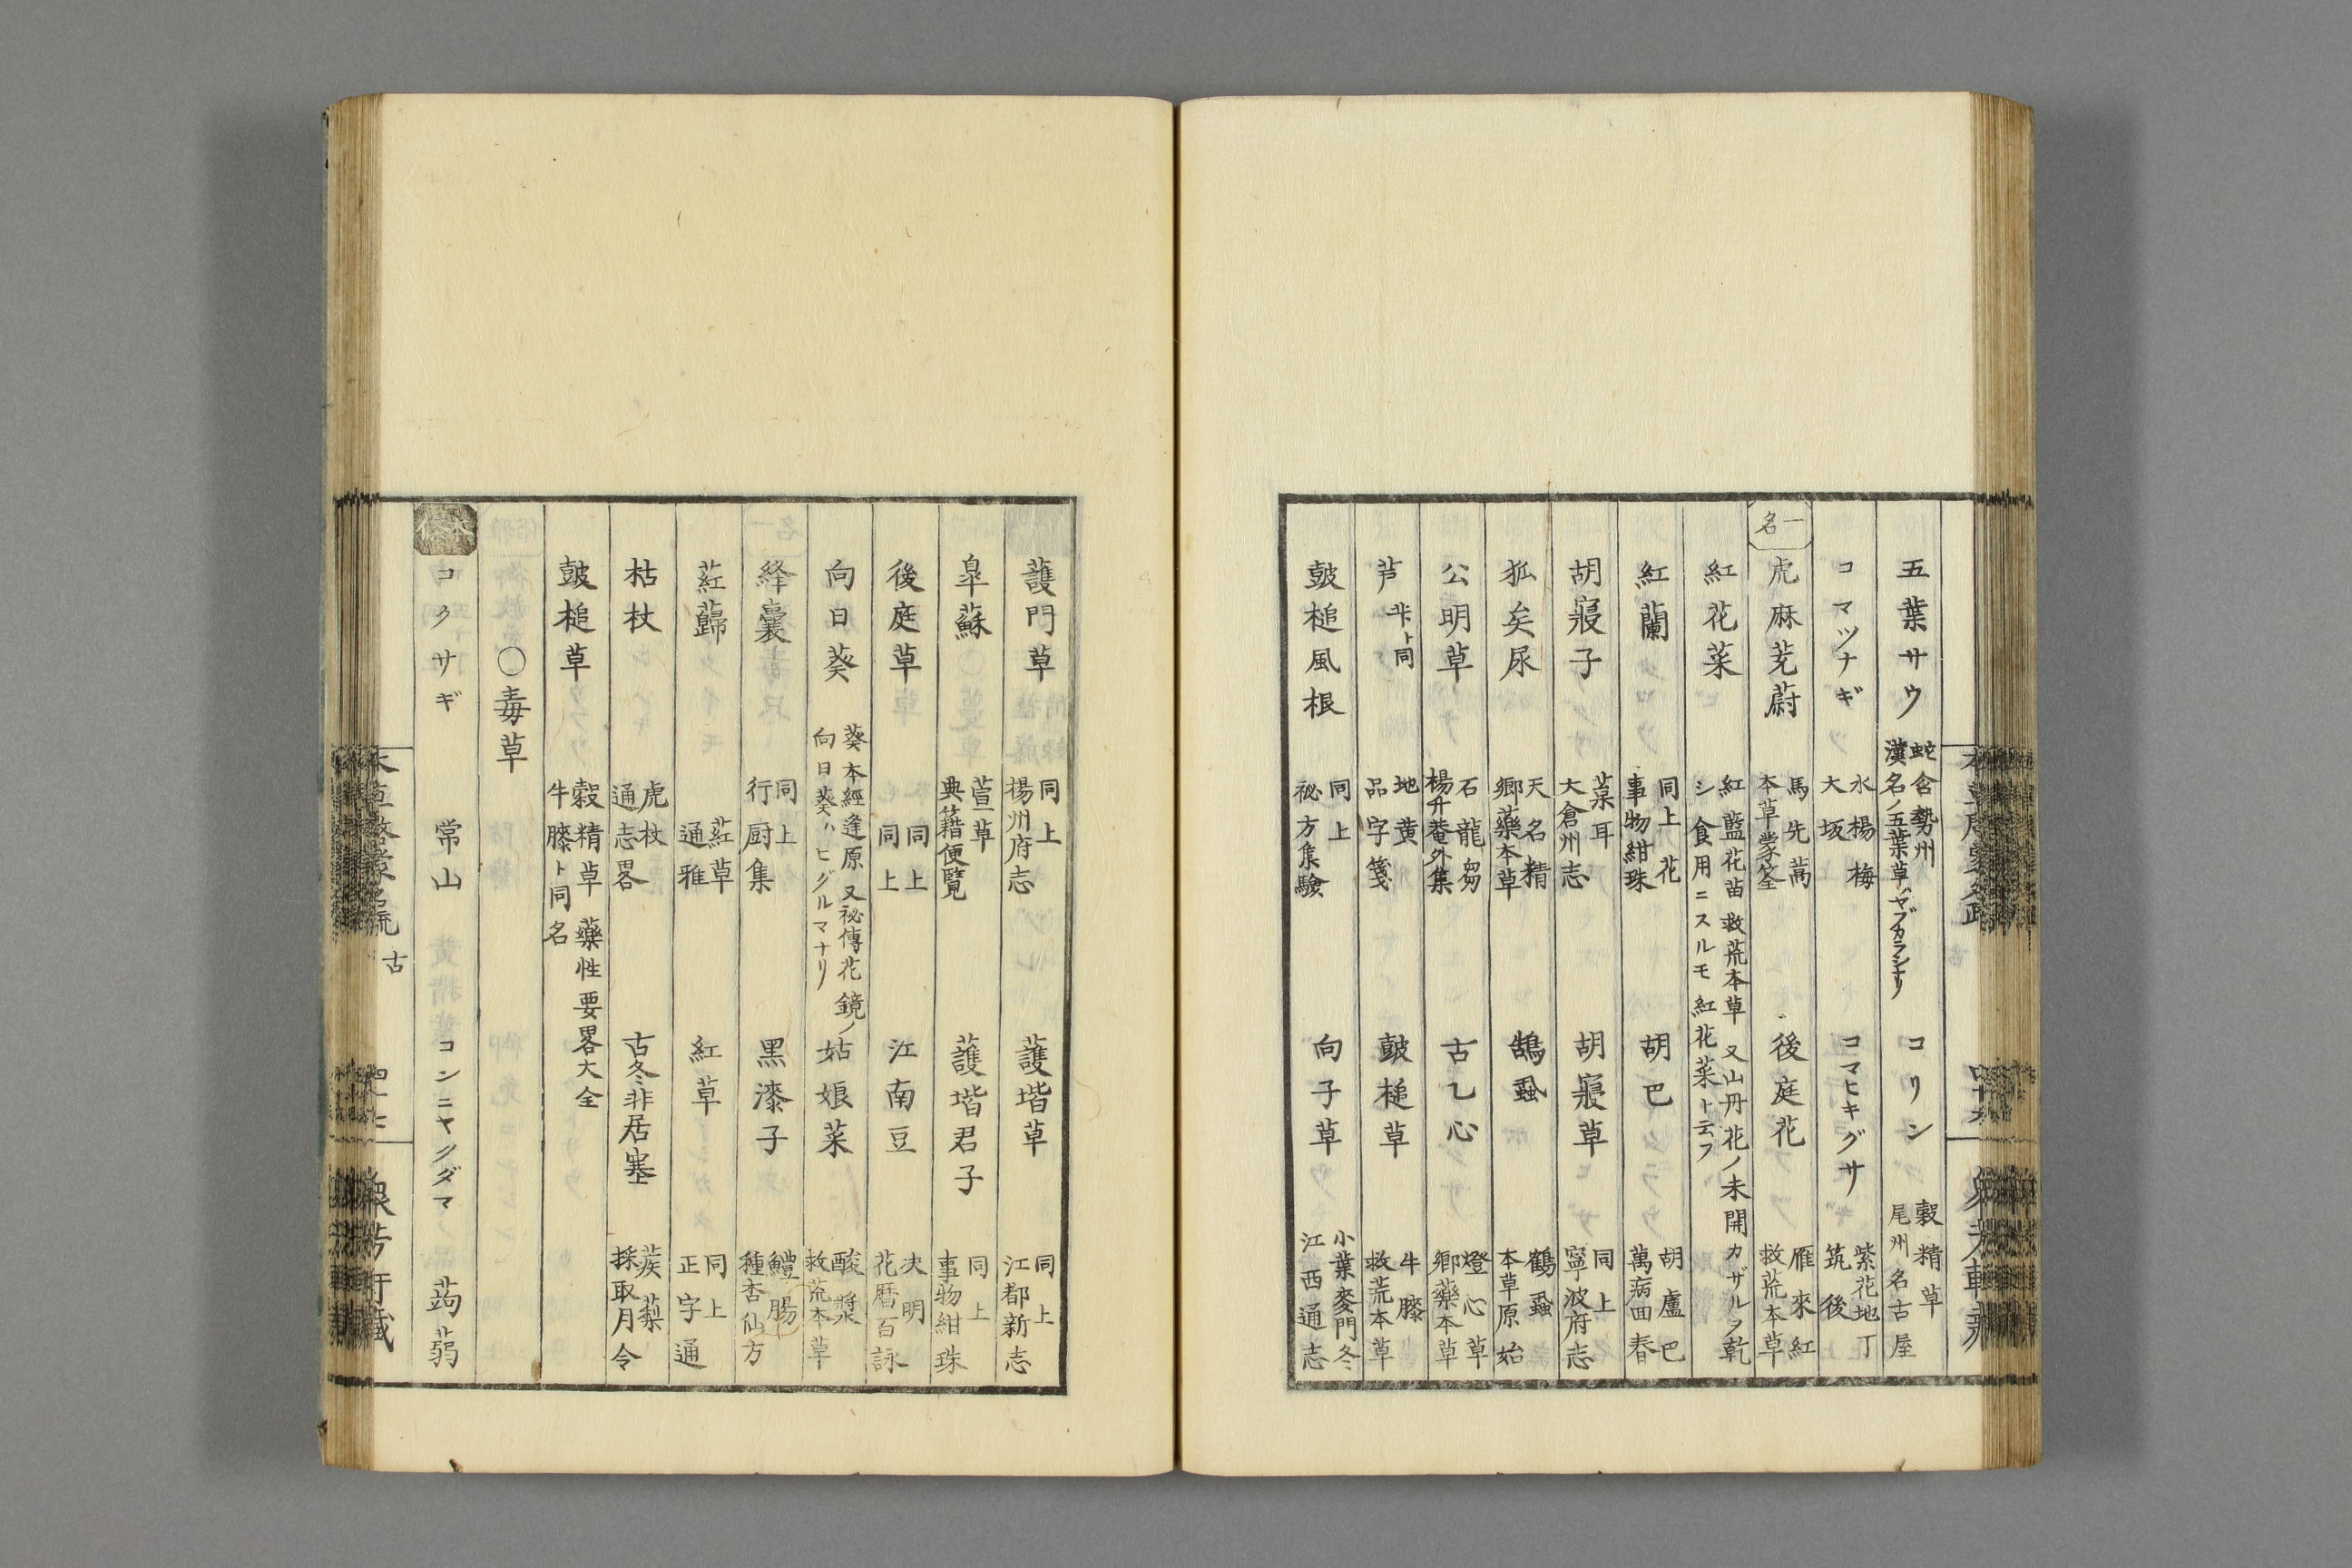 五葉サウ 蛇含 勢州 漢名ノ五葉草ハヤブカラシナリ コリン 穀精草 尾州名古屋
コマツナギ 水楊梅 大坂 コマヒキグサ 紫花地丁 筑後
一名 虎麻茺蔚 馬先蒿 本草蒙筌 後庭花 雁來紅 救荒本草
紅花菜 紅藍花苗 救荒本草 又山丹花ノ未開カザルヲ乾シ食用ニスルモ紅花菜ト云フ
紅蘭 同上 花 事物紺珠 胡巴 胡盧巴 萬病回春
胡寢子 菜耳 大倉州志 胡寢草 同上 寧波府志
狐矢尿 天名精 鄉藥本草 鵠蝨 鶴蝨 本草原始
公明草 石龍芻 楊升菴外集 古乙心 燈心草 鄉藥本草
芐 芐ト同 地黄 品字箋 鼓槌草 牛膝 救荒本草
鼓槌風根 同上 祕方集驗 向子草 小葉麥門冬 江西通志
蘐門草 同上 楊州府志 蘐堦草 同上 江都新志
皐蘇 萱草 典籍便覽 蘐堦君子 同上 事物紺珠
後庭草 同上 同上 江南豆 决明 花曆百詠
向日葵 葵 本經逢原 又祕傳花鏡ノ向日葵ハヒグルマナリ 姑娘菜 酸漿 救荒本草
絳囊 同上 行厨集 黑漆子 鱧腸 種杏仙方
葒蘬 葒草 通雅 紅草 同上 正字通
枯杖 虎杖 通志畧 古冬非居塞 蒺蔾 採取月令
鼓槌草 穀精草 藥性要畧大全 牛膝ト同名
〇毒草
本 コクサギ 常山 コンニヤクダマ 蒟蒻
本草啓蒙名疏 古 四十七 衆芳軒藏